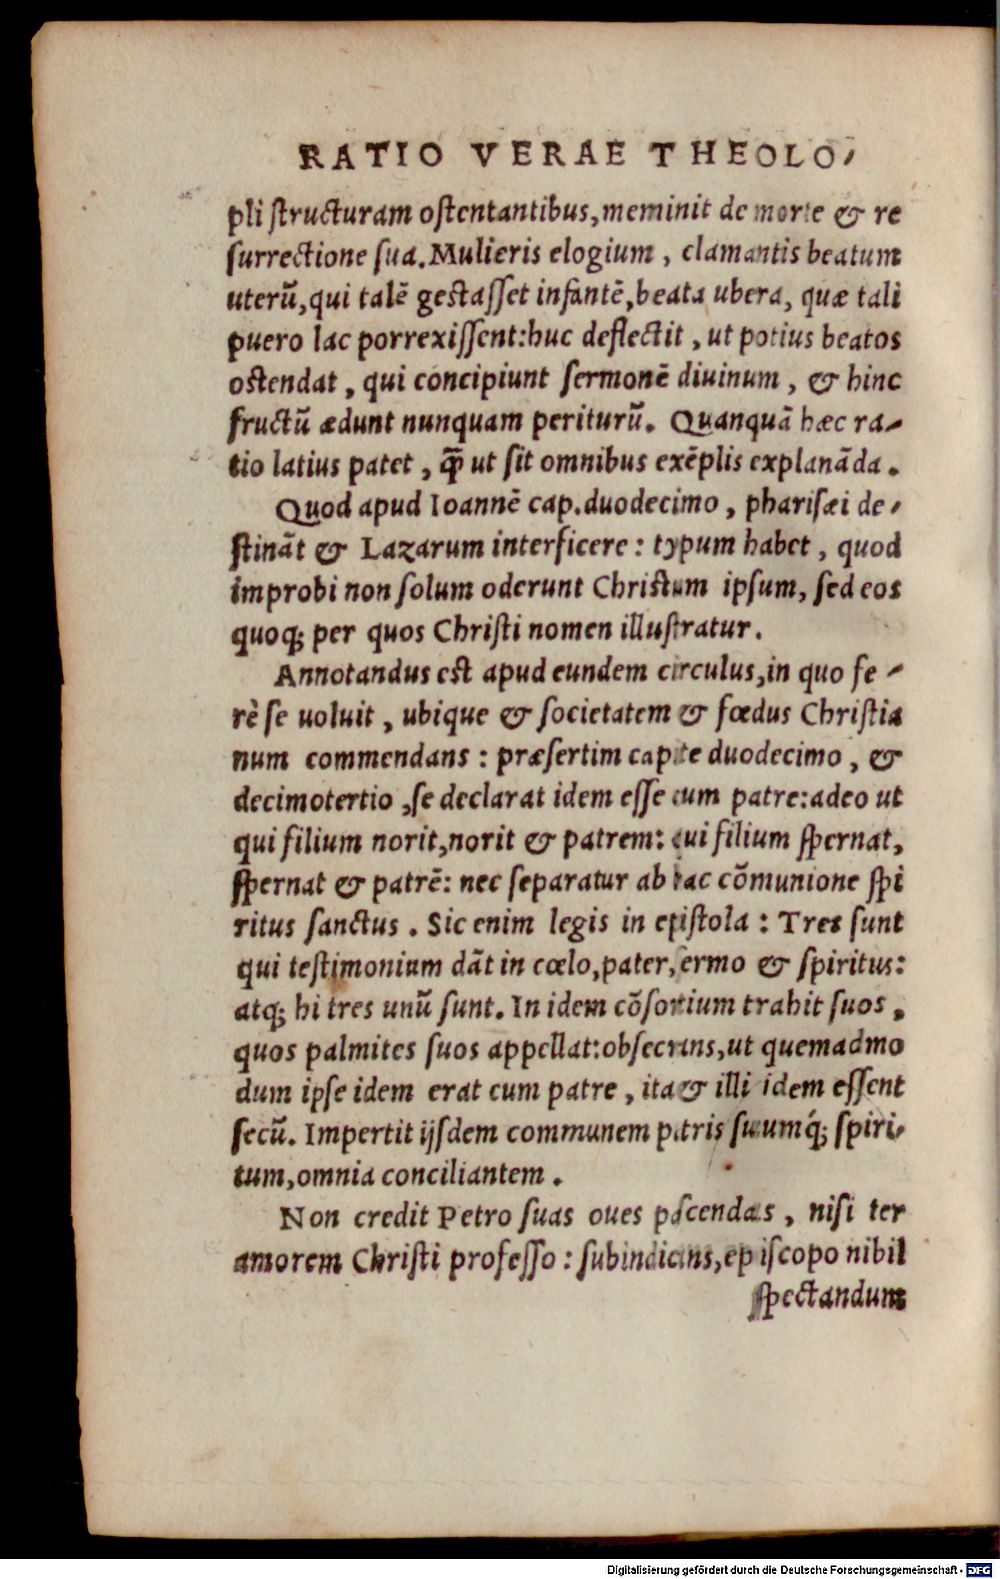 RATIO VERAE THEOLO-
pli ſtructuram oſtentantibus, meminit de morte & re
ſurrectione ſua. Mulieris elogium, clamantis beatum
uterū, qui talē geſtaſſet infantē, beata ubera, quæ tali
puero lac porrexiſſent: huc deflectit, ut potius beatos
oſtendat, qui concipiunt ſermonē diuinum, & hinc
fructū ædunt nunquam periturū. Quanquā hæc ra-
tio latius patet, ꝙ̄ ut ſit omnibus exēplis explanāda.
Quod apud Ioannē cap. duodecimo, phariſæi de-
ſtināt & Lazarum interficere: typum habet, quod
improbi non ſolum oderunt Chriſtum ipſum, ſed eos
quoq; per quos Chriſti nomen illuſtratur.
Annotandus eſt apud eundem circulus, in quo fe-
rè ſe uoluit, ubique & ſocietatem & fœdus Chriſtia
num commendans: præſertim capite duodecimo, &
decimotertio, ſe declarat idem eſſe cum patre: adeo ut
qui filium norit, norit & patrem: qui filium ſpernat,
ſpernat & patrē: nec ſeparatur ab hac cōmunione ſpi
ritus ſanctus. Sic enim legis in epiſtola: Tres ſunt
qui teſtimonium dāt in cœlo, pater, ſermo & ſpiritus:
atq; hi tres unū ſunt. In idem cōſortium trahit ſuos,
quos palmites ſuos appellat: obſecrans, ut quemadmo
dum ipſe idem erat cum patre, ita & illi idem eſſent
ſecū. Impertit ijſdem communem patris ſuumq́; ſpiri-
tum, omnia conciliantem.
Non credit Petro ſuas oues paſcendas, niſi ter
amorem Chriſti profeſſo: ſubindicans, epiſcopo nihil
ſpectandum
Digitalisierung gefördert durch die Deutsche Forschungsgemeinschaft - DFG